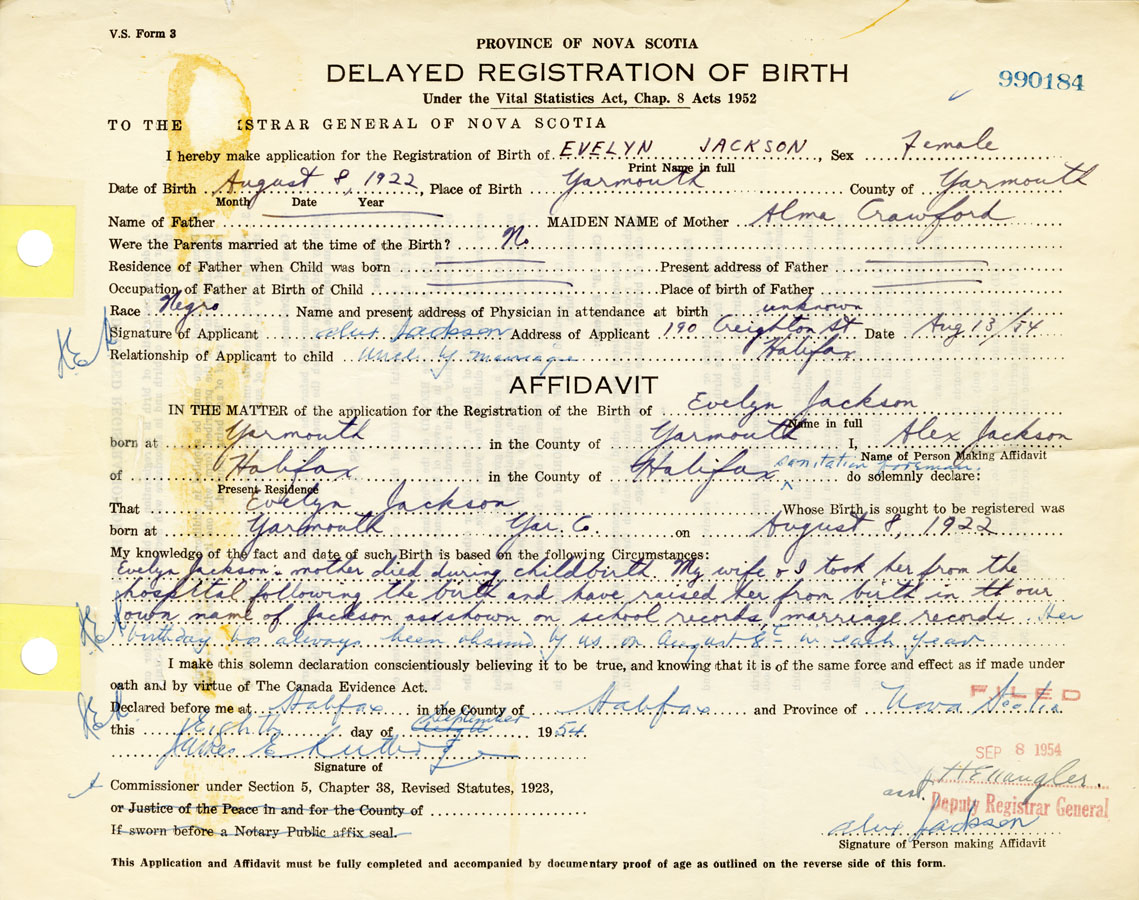 V.S. Form 3
PROVINCE OF NOVA SCOTIA
DELAYED REGISTRATION OF BIRTH
990184
Under the Vital Statistics Act, Chap. 8 Acts 1952
TO THE ISTRAR GENERAL OF NOVA SCOTIA
I hereby make application for the Registration of Birth of EVELYN JACKSON, Sex Female
Print Name in full
Date of Birth August 8, 1922, Place of Birth Yarmouth County of Yarmouth
Month Date Year
Name of Father MAIDEN NAME of Mother Alma Crawford
Were the Parents married at the time of the Birth? No
Residence of Father when Child was born Present address of Father
Occupation of Father at Birth of Child Place of birth of Father
Race Negro Name and present address of Physician in attendance at birth unknown
Signature of Applicant Alex Jackson Address of Applicant 190 Creighton St Date Aug 13/54
Halifax
Relationship of Applicant to child Uncle by marriage
AFFIDAVIT
IN THE MATTER of the application for the Registration of the Birth of Evelyn Jackson
Name in full
born at Yarmouth in the County of Yarmouth I, Alex Jackson
Name of Person Making Affidavit
of Halifax in the County of Halifax sanitation foreman do solemnly declare:
Present Residence
That Evelyn Jackson Whose Birth is sought to be registered was
born at Yarmouth Yar. Co. on August 8, 1922
My knowledge of the fact and date of such Birth is based on the following Circumstances:
Evelyn Jackson - mother died during childbirth. My wife & I took her from the
hospital following the birth and have raised her from birth in our
own name of Jackson as shown on school records, marriage records. Her
birthday has always been observed by us on August 8th in each year
I make this solemn declaration conscientiously believing it to be true, and knowing that it is of the same force and effect as if made under
oath and by virtue of The Canada Evidence Act.
FILED
Declared before me at Halifax in the County of Halifax and Province of Nova Scotia
this Eighth day of September 1954
SEP 8 1954
James E
Signature of
Commissioner under Section 5, Chapter 38, Revised Statutes, 1923,
asst. Deputy Registrar General
or Justice of the Peace in and for the County of
If sworn before a Notary Public affix seal.
Alex Jackson
Signature of Person making Affidavit
This Application and Affidavit must be fully completed and accompanied by documentary proof of age as outlined on the reverse side of this form.